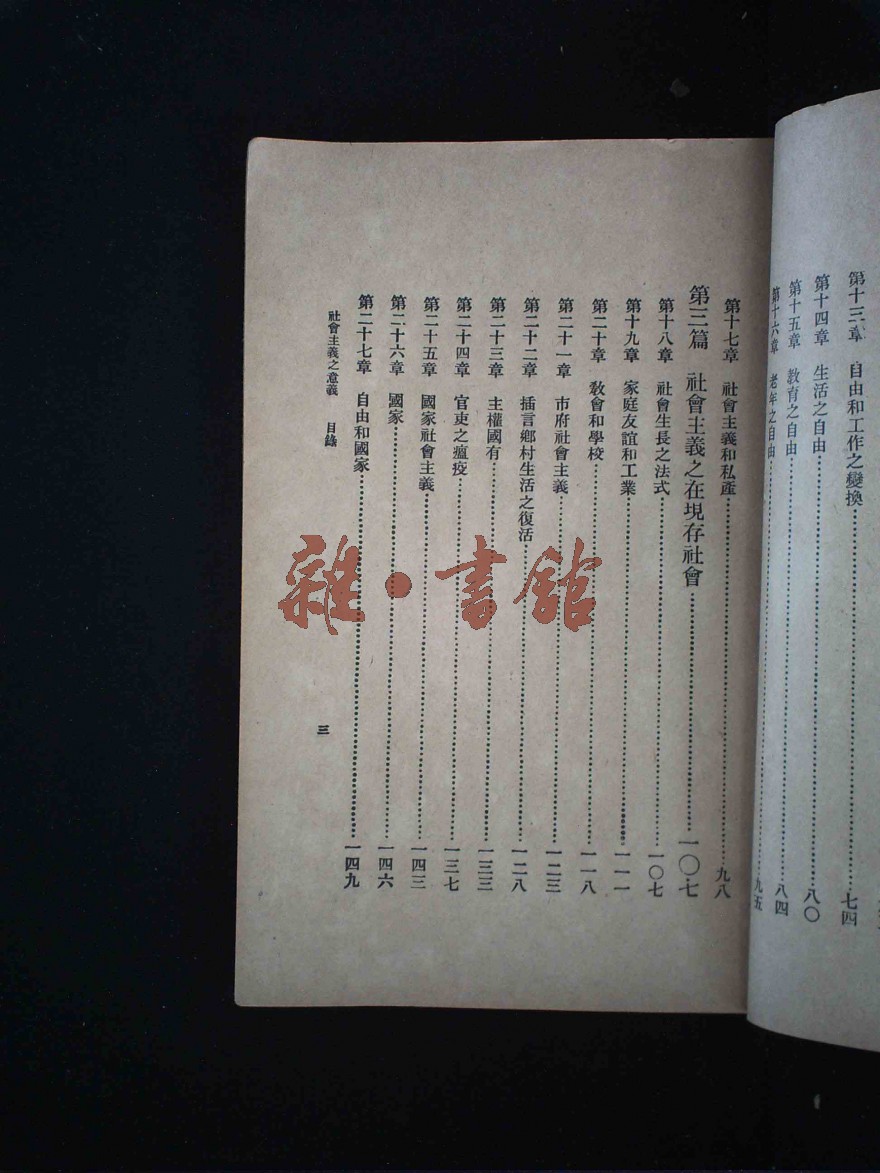 第十三章 自由和工作之變換……七四
第十四章 生活之自由……八〇
第十五章 教育之自由……八四
第十六章 老年之自由……九五
第十七章 社會主義和私產……九八
第三篇 社會主義之在現存社會……一〇七
第十八章 社會生長之法式……一〇七
第十九章 家庭友誼和工業……一一一
第二十章 教會和學校……一一八
第二十一章 市府社會主義……一二三
第二十二章 插言鄉村生活之復活……一二八
第二十三章 主權國有……一三三
第二十四章 官吏之瘟疫……一三七
第二十五章 國家社會主義……一四三
第二十六章 國家……一四六
第二十七章 自由和國家……一四九
社會主義之意義 目錄 三
雜·書館